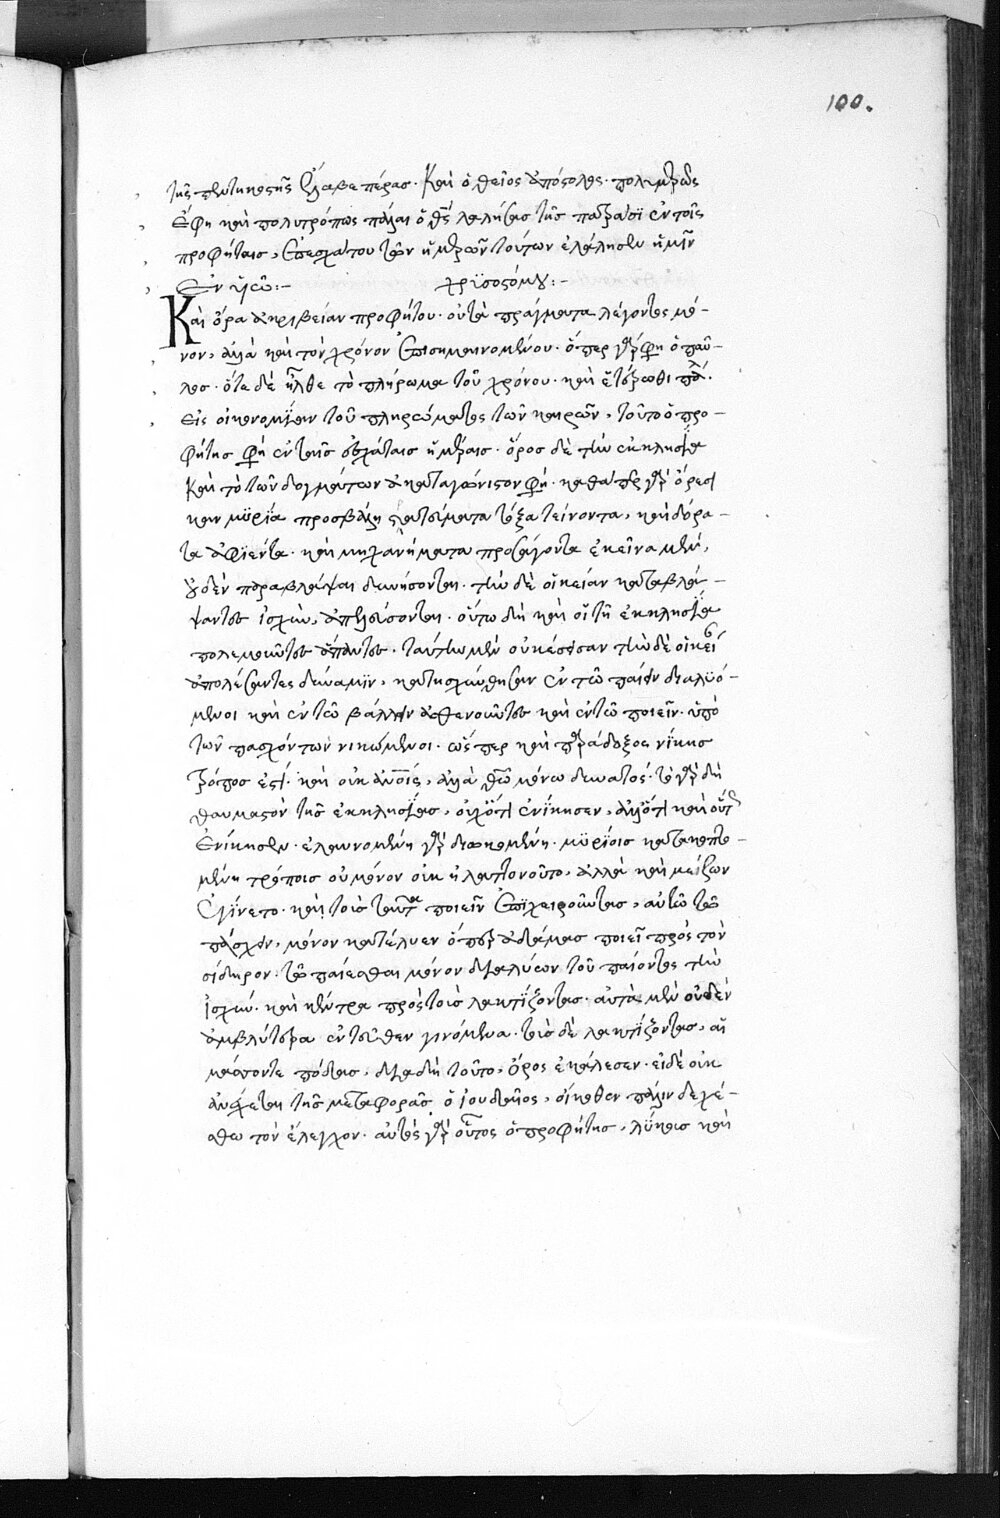 100.
τῆς πεντηκοστῆς ἔλαβε πέρας. Καὶ ὁ θεῖος ἀπόστολος. πολυμερῶς
ἔφη καὶ πολυτρόπως πάλαι ὁ θς λαλήσας τοῖς πατράσϊ ἐν τοῖς
προφήταις, ἐπεσχάτου τῶν ἡμερῶν τούτων ἐλάλησεν ἡμῖν
ἐν υἱῶ:– χρϊσοστόμου:–
Καὶ ὅρα ἀκριβείαν προφήτου. οὐ τὰ πράγματα λέγοντος μό-
νον, ἀλλὰ καὶ τὸν χρόνον ἐπισημαινομένου. ὅπερ γὰρ φη ὁ παῦ-
λος. ὅτε δὲ ἦλθε τὸ πλήρωμα τοῦ χρόνου. καὶ ἑτέρωθι πάλ.
εἰς οἰκονομΐαν τοῦ πληρώματος τῶν καιρῶν, τοῦτο ὁ προ-
φήτης φη ἐν ταῖς ἐσχάταις ἡμέραις. ὄρος δὲ τὴν ἐκκλησΐα
καὶ τὸ τῶν δογμάτων ἀκαταγώνιστον φη. καθάπερ γὰρ ὄρεσι
καν μϋρΐα προσβάλη στρατεύματα τόξα τείνοντα, καὶ δόρα-
τα ἀφϊέντα. καὶ μηχανήματα προσάγοντα ἐκεῖνα μὲν,
οὐδὲν παραβλάψαι δυνήσονται. τὴν δὲ οἰκείαν καταβλά-
ψαντες ἰσχὺν, ἀπελεύσονται. οὕτω δὴ καὶ οἱ τῆ ἐκκλησΐα
πολεμοῦντες ἅπαντες. ταύτην μὲν οὐκ ἔσεισαν τὴν δὲ οἰκεί
ἀπολέσαντες δύναμϊν, κατησχύνθησαν ἐν τῶ παίειν διαλϋό-
μενοι καὶ ἐν τῶ βάλλειν ἀσθενοῦντες καὶ ἐν τῶ ποιεῖν. ὑπὸ
τῶν πασχόντων νικώμενοι. ὥσπερ καὶ παράδοξος νΐκης
τρόπος ἐστὶ. καὶ οὐκ ἀνοις, ἀλλὰ θῶ μόνω δυνατός. τὸ γὰρ δὴ
θαυμαστὸν τῆς ἐκκλησΐας, οὐχ ὅτι ἐνΐκησεν, ἀλλ' ὅτι καὶ οὕτ
ἐνίκησεν. ἐλαυνομένη γὰρ διωκομένη. μϋρίοις κατακοπτο-
μένη τρόποις οὐ μόνον οὐκ ἠλαττονοῦτο, ἀλλὰ καὶ μείζων
ἐγΐνετο. καὶ τοὺς ταῦτα ποιεῖν ἐπϊχειροῦντας, αὐτῶ τῶ
πάσχειν, μόνον κατέλυεν ὅπερ ἀδάμας ποιεῖ πρὸς τὸν
σίδηρον. τῶ παίεσθαι μόνον διαλύων τοῦ παίοντος τὴν
ἰσχύν. καὶ κέντρα πρὸς τοὺς λακτίζοντας. αὐτὰ μὲν οὐδὲν
ἀμβλύτερα ἐντεῦθεν γινόμενα. τοὺς δὲ λακτίζοντας, αἱ
μάσσοντα πόδας, διὰ δὴ τοῦτο, ὄρος ἐκάλεσεν. εἰ δὲ οὐκ
ἀνέχεται τῆς μεταφορᾶς ὁ ἰουδαῖος, οἴκοθεν πάλιν δεχέ-
σθω τὸν ἔλεγχον. αὐτὸς γὰρ οὗτος ὁ προφήτης, λΰκοις καὶ